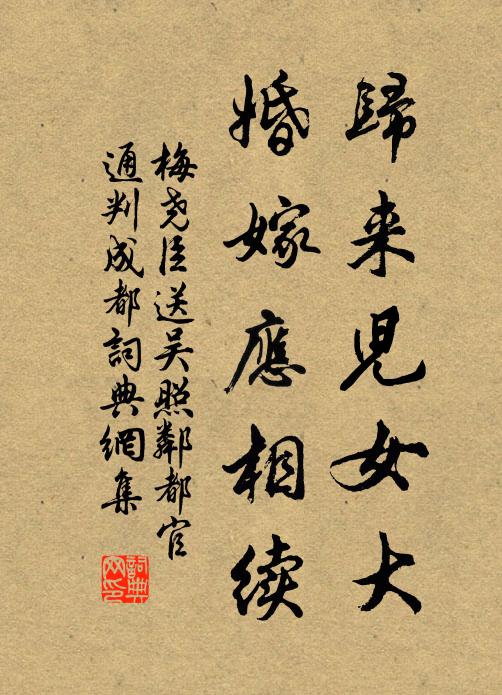 歸来児女大
婚嫁應相续
梅尧臣送吴照鄰都官
通判成都詞典網集
詞典网印